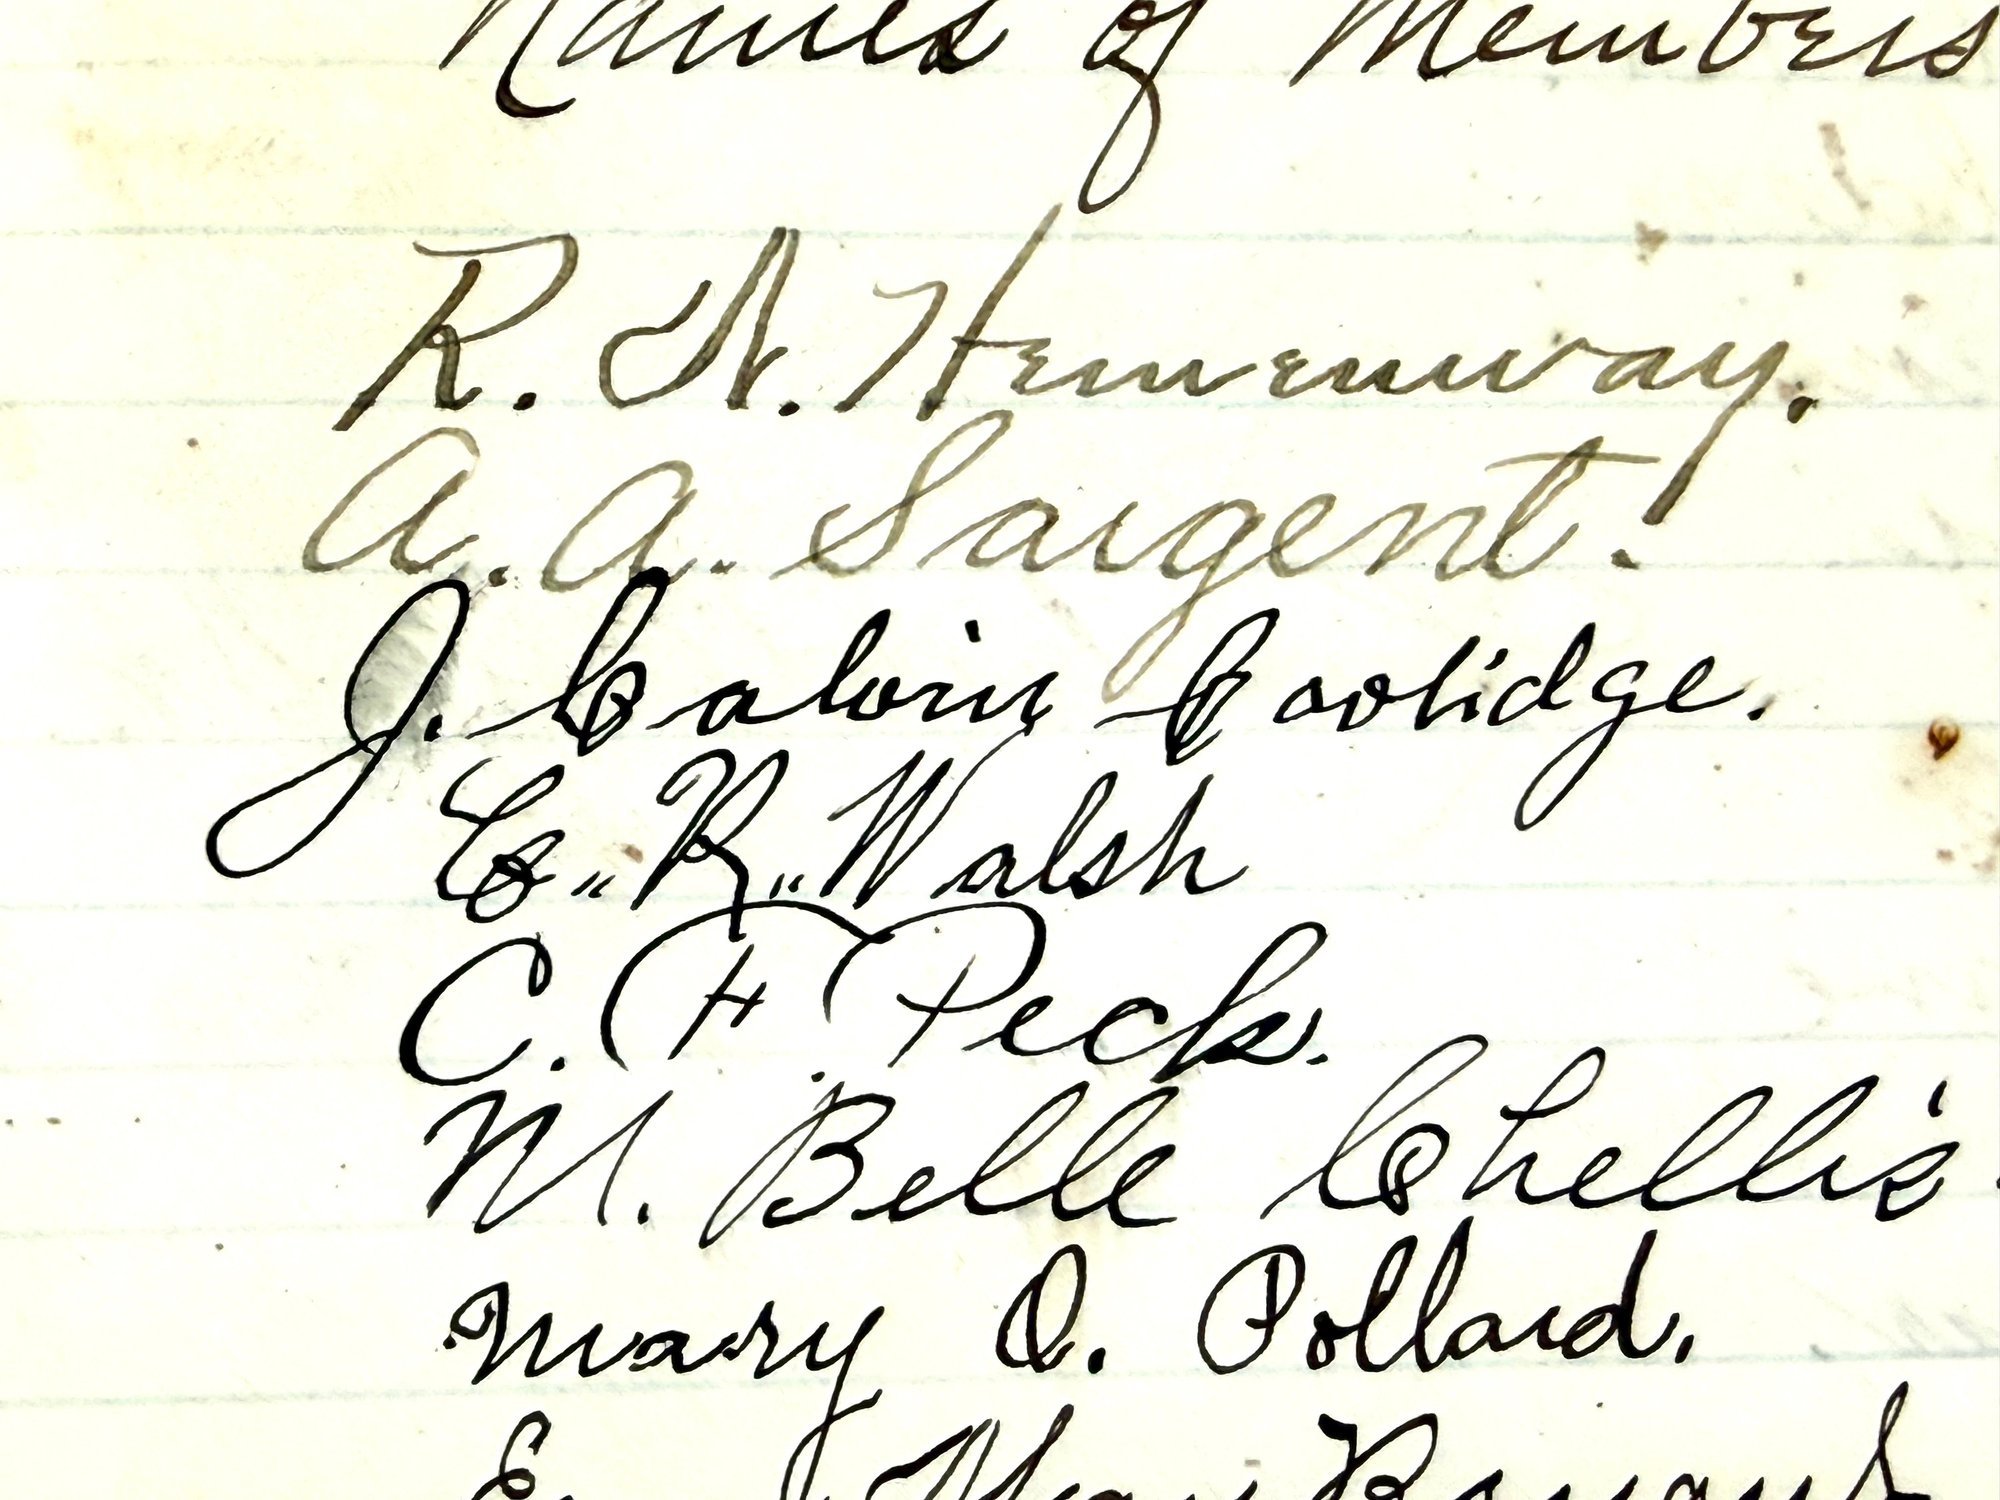 Names of Members
R. A. Hemenway.
A. A. Sargent.
J. Calvin Coolidge.
E. R. Walsh
C. F. Peck.
M. Belle Chellis.
Mary O. Pollard.